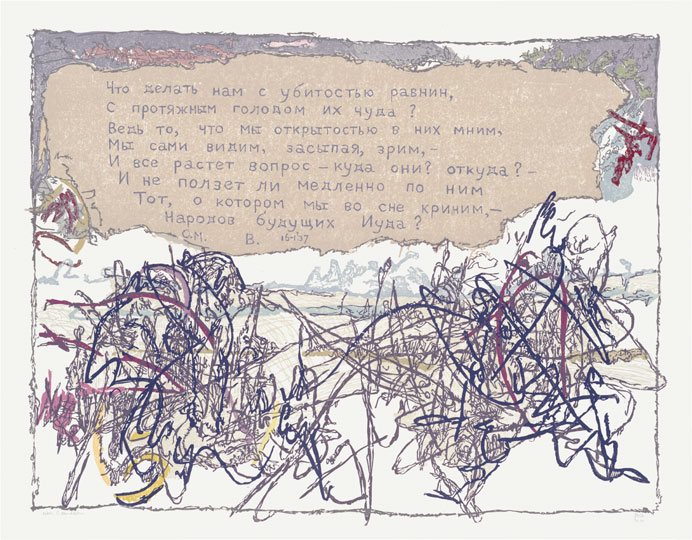 Что делать нам с убитостью равнин,
С протяжным голодом их чуда?
Ведь то, что мы открытостью в них мним,
Мы сами видим, засыпая, зрим,—
И все растет вопрос — куда они? откуда?—
И не ползет ли медленно по ним
Тот, о котором мы во сне кричим,—
Народов будущих Иуда?
С.М. В. 16-I-37